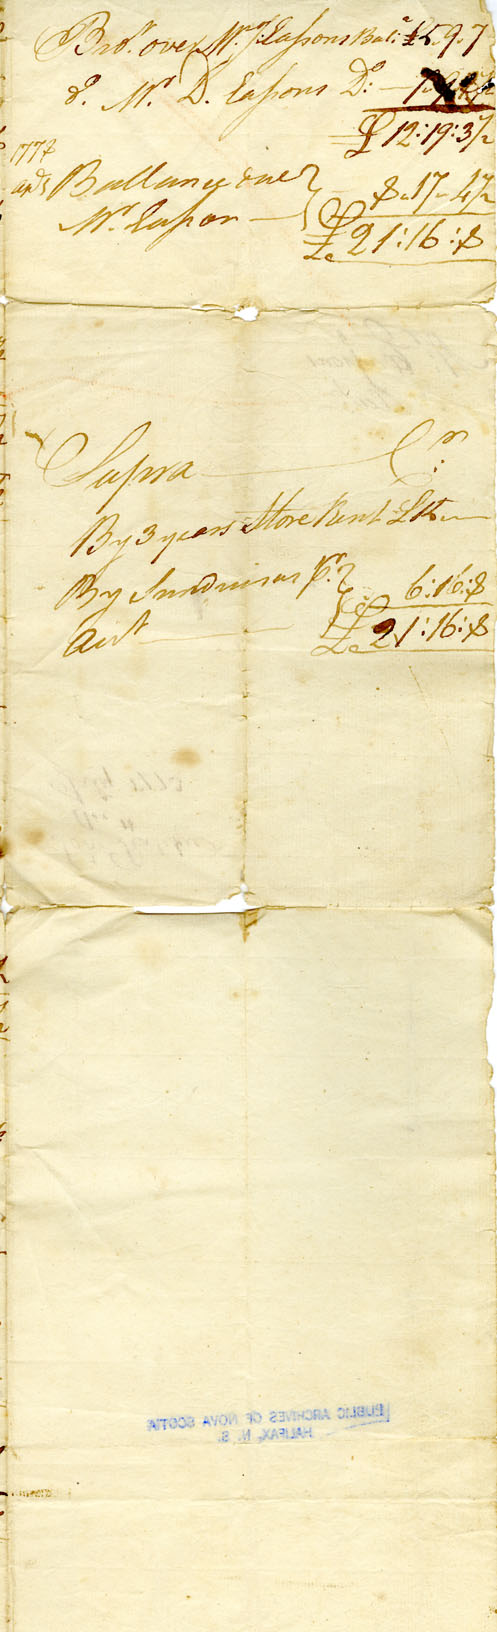 Bro.t over Mr. J: Eassons Bal.e £5.9.7
do. Mr. D. Easons Do: —
£12:19:3½
1778
Ballance due
Mr. Eason — 8.17.4½
£21:16:8
Supra — Cr:
By 3 years Store Rent £15 —
By Sundries as Pr. 6:16:8
acct — £21:16:8
PUBLIC ARCHIVES OF NOVA SCOTIA
HALIFAX, N. S.